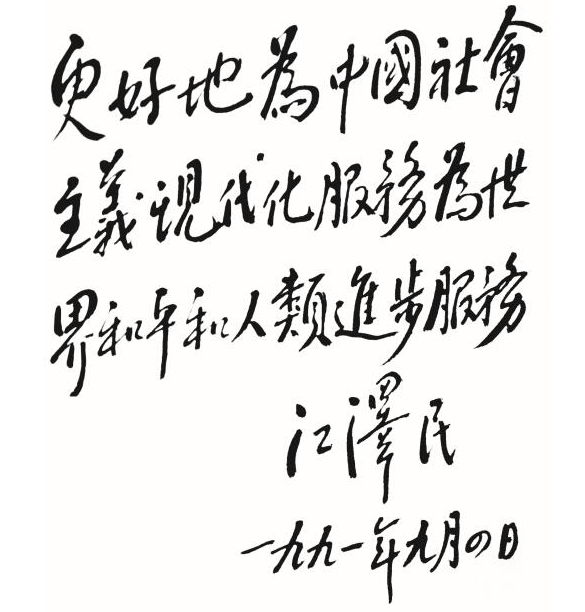 更好地為中國社會
主義現代化服務為世
界和平和人類進步服務
江澤民
一九九一年九月四日